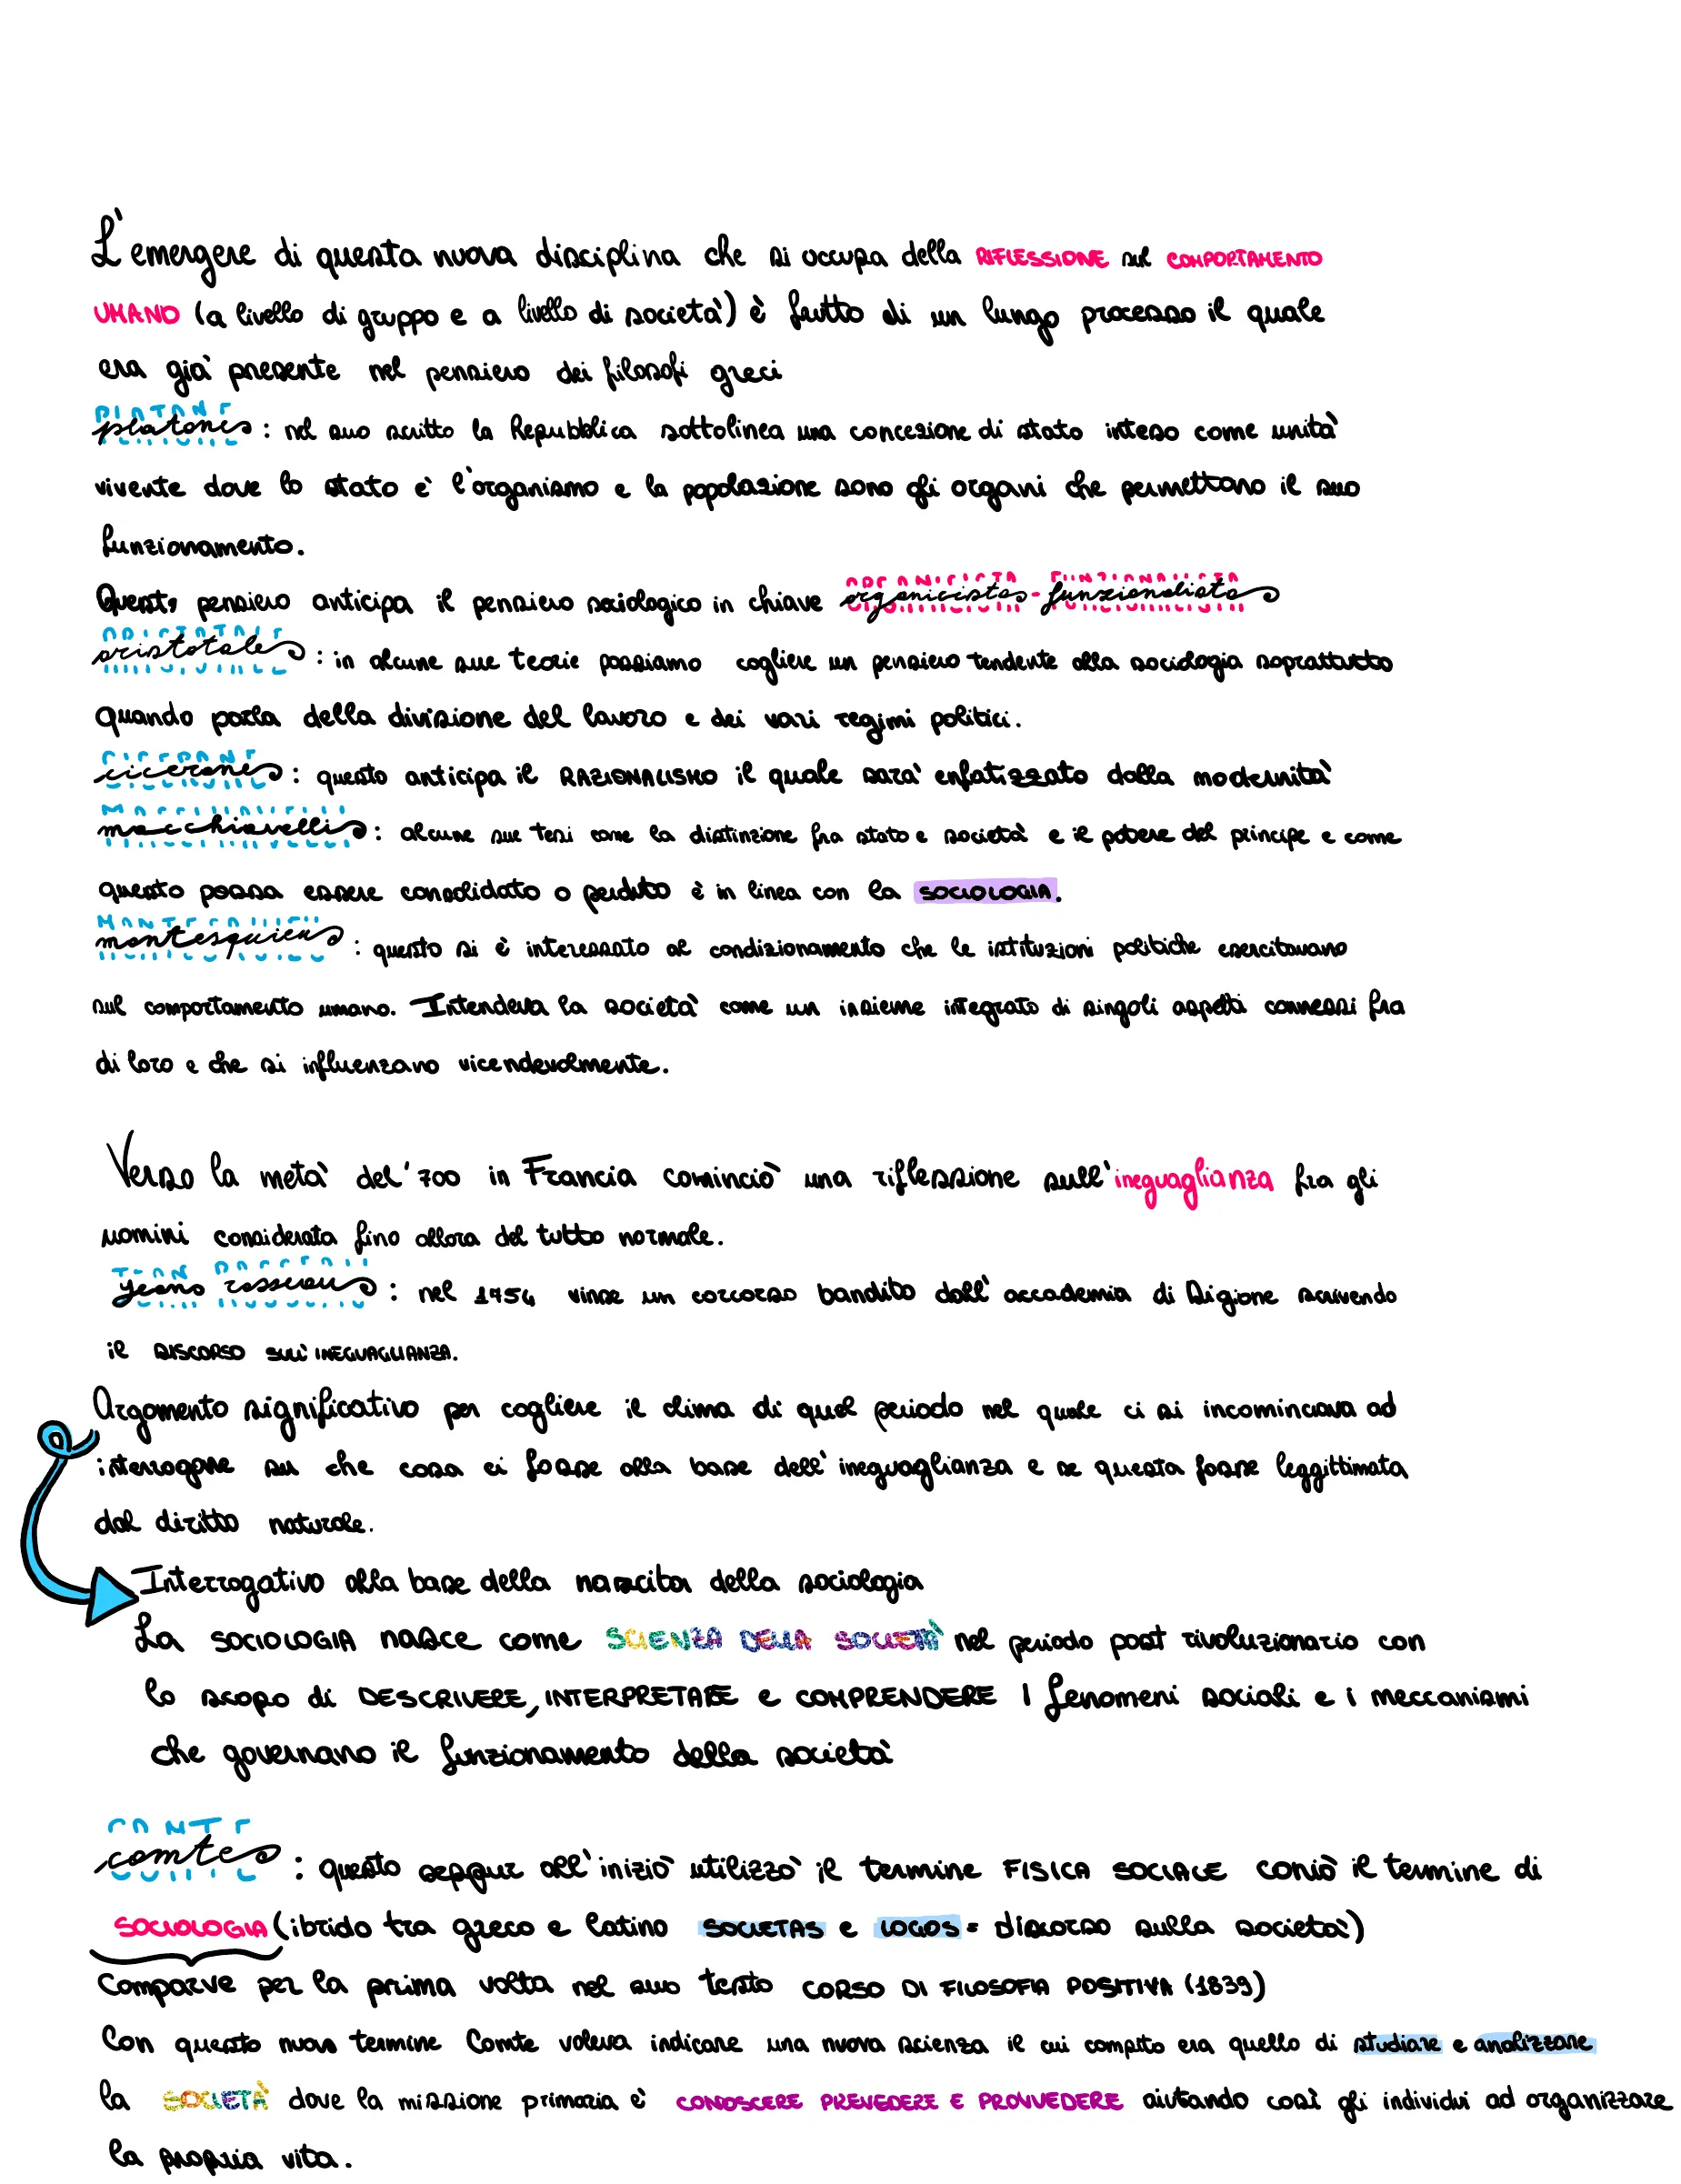 L'emergere di questa nuova disciplina che si occupa della RIFLESSIONE sul COMPORTAMENTO
UMANO (a livello di gruppo e a livello di società) è frutto di un lungo processo il quale
era già presente nel pensiero dei filosofi greci
platone: nel suo scritto la Repubblica sottolinea una concezione di stato inteso come unità
vivente dove lo stato è l'organismo e la popolazione sono gli organi che permettono il suo
funzionamento.
Questo pensiero anticipa il pensiero sociologico in chiave organicista-funzionalista
aristotele: in alcune sue teorie possiamo cogliere un pensiero tendente alla sociologia soprattutto
quando parla della divisione del lavoro e dei vari regimi politici.
cicerone: questo anticipa il RAZIONALISMO il quale sarà enfatizzato dalla modernità
macchiavelli: alcune sue tesi come la distinzione fra stato e società e il potere del principe e come
questo possa essere consolidato o perduto è in linea con la SOCIOLOGIA.
montesquieu: questo si è interessato al condizionamento che le istituzioni politiche esercitavano
sul comportamento umano. Intendeva la società come un insieme integrato di singoli aspetti connessi fra
di loro e che si influenzano vicendevolmente.
Verso la metà del '700 in Francia cominciò una riflessione sull'ineguaglianza fra gli
uomini considerata fino allora del tutto normale.
jean rosseau: nel 1754 vinse un corcorso bandito dall'accademia di Digione scrivendo
il DISCORSO SULL'INEGUAGLIANZA.
Argomento significativo per cogliere il clima di quel periodo nel quale ci si incominciava ad
interrogare su che cosa ci fosse alla base dell'ineguaglianza e se questa fosse leggittimata
dal diritto naturale.
Interrogativo alla base della nascita della sociologia
La SOCIOLOGIA nasce come SCIENZA DELLA SOCIETÀ nel periodo post rivoluzionario con
lo scopo di DESCRIVERE, INTERPRETARE e COMPRENDERE I fenomeni sociali e i meccanismi
che governano il funzionamento della società
comte: questo seppur all'inizio utilizzò il termine FISICA SOCIALE coniò il termine di
SOCIOLOGIA (ibrido tra greco e latino SOCIETAS e LOGOS = discorso sulla società)
Comparve per la prima volta nel suo testo CORSO DI FILOSOFIA POSITIVA (1839)
Con questo nuovo termine Comte voleva indicare una nuova scienza il cui compito era quello di studiare e analizzare
la SOCIETÀ dove la missione primaria è CONOSCERE PREVEDERE E PROVVEDERE aiutando così gli individui ad organizzare
la propria vita.